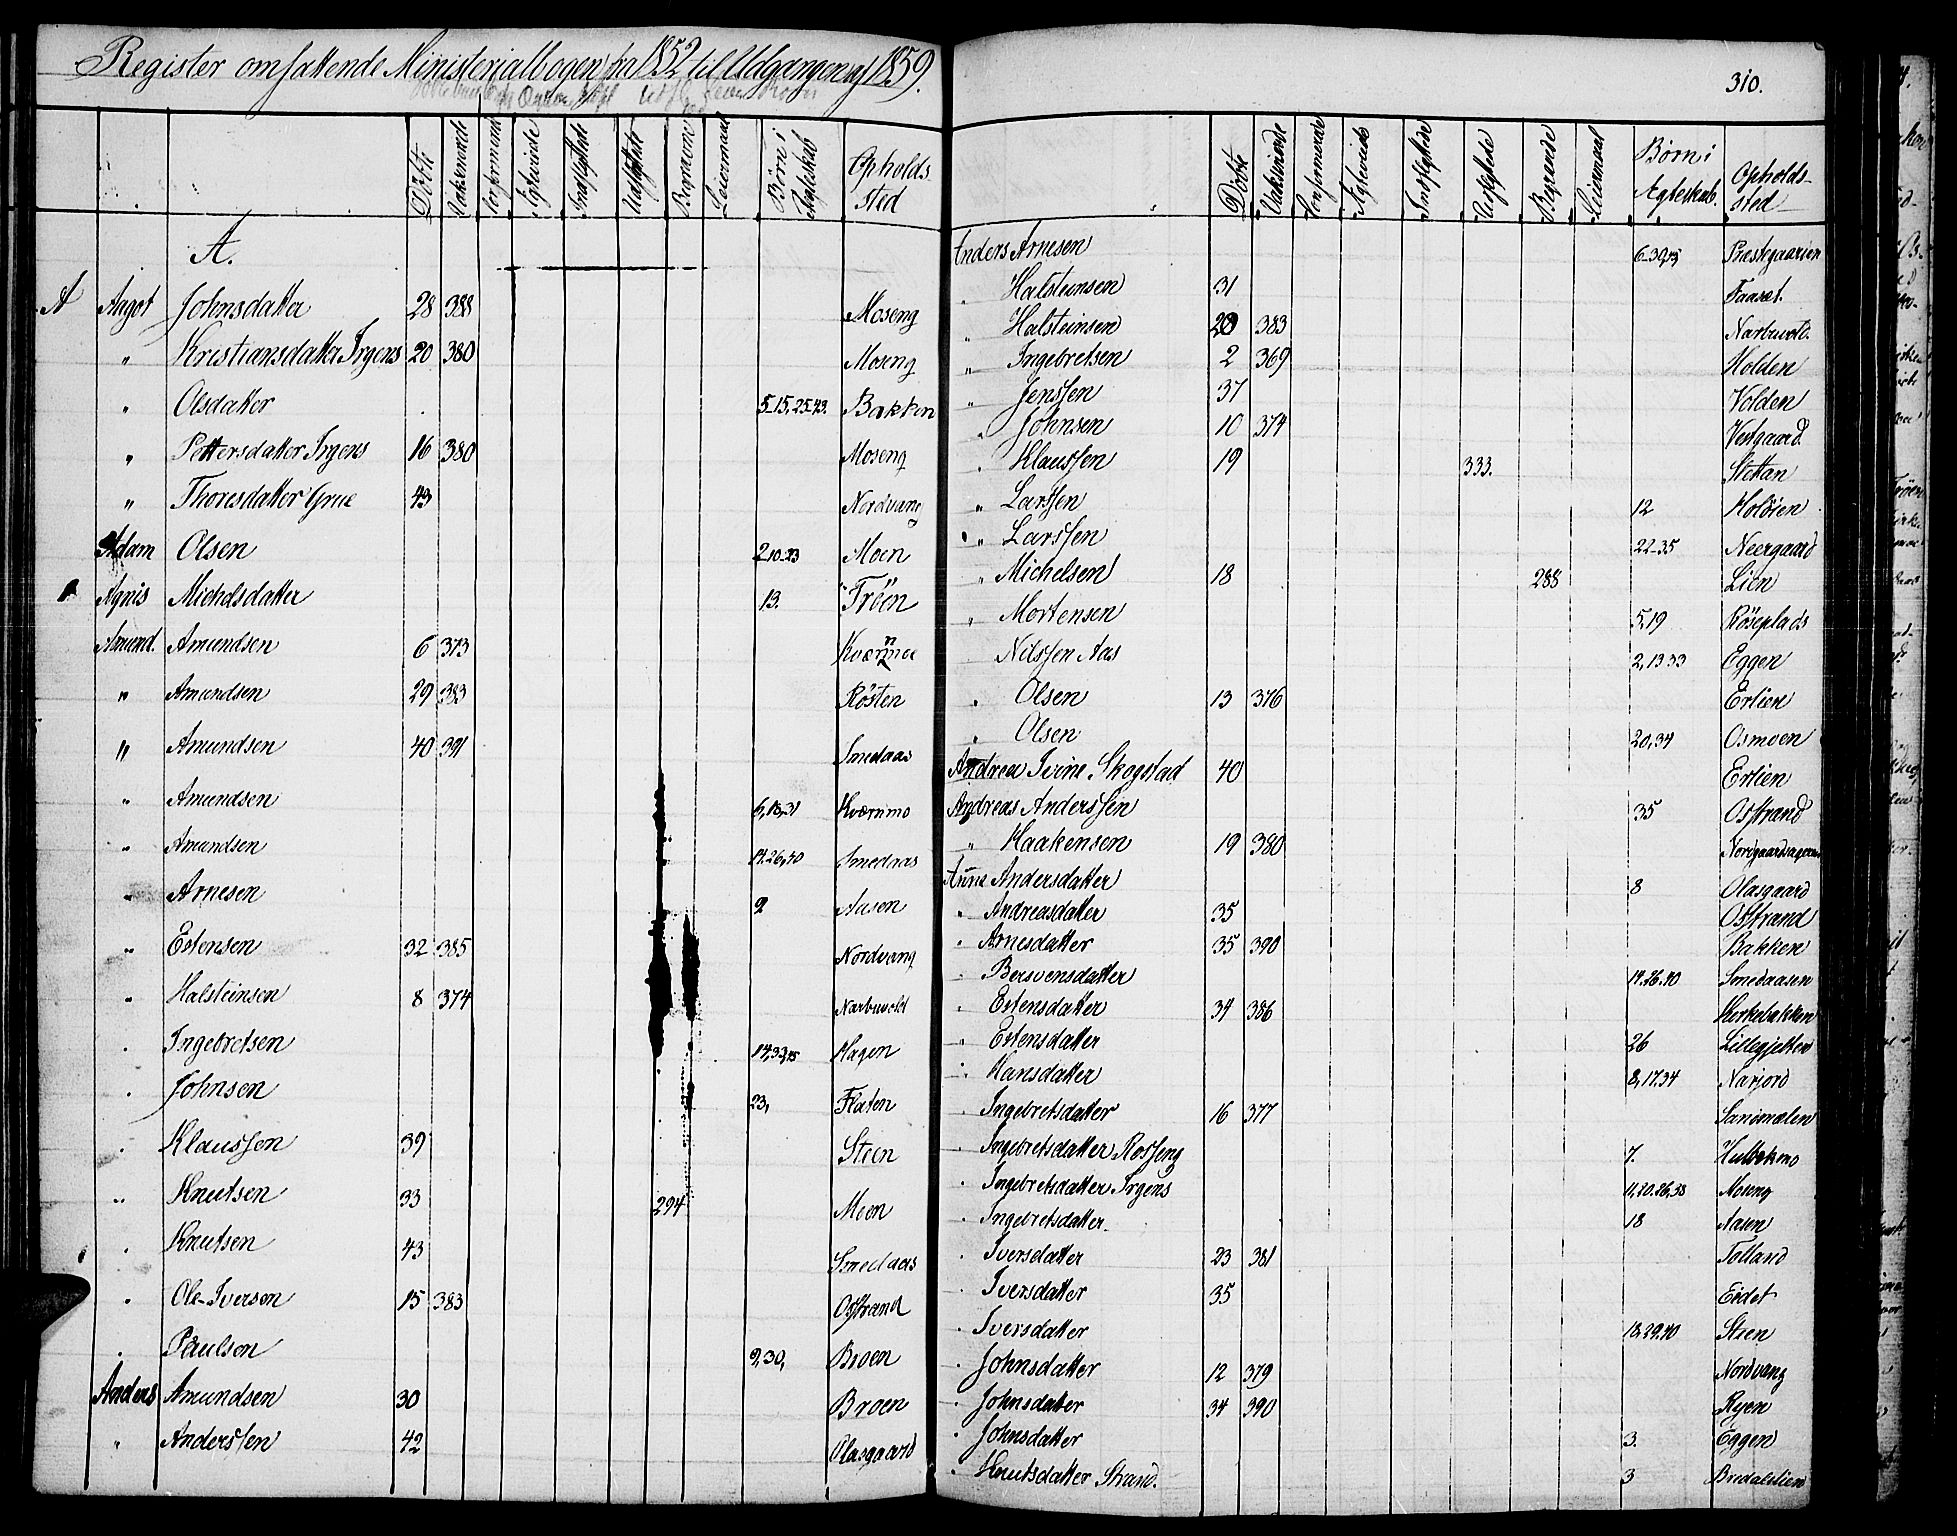 Register omfattende Ministerialbogen fra 1852 til Udgangen af 1859.
Döbte Vaksinerede Konfirmerede Ægteviede Indflyttede Udflyttede Begravne Leiermaal Børn i Ægteskab Opholds-sted
A.
A Aagot Johnsdatter 28 388 Moseng
" Kristiansdatter Irgens 20 380 Moseng
" Olsdatter 5-15, 25-43. Bakken
" Pettersdatter Irgens 16 380 Moseng
" Thoresdatter Grue 43 Nordvang
Adam Olsen 2 10-23 Moen
Agnis Michelsdatter 13. Tröen
Amund. Amundsen 6 373 Kværnmoe
" Amundsen 29 383 Røsten
" Amundsen 40 391 Smedaas
" Amundsen 6, 18, 31 Kværnmo
" Amundsen 14. 26, 40 Smedaas
" Arnesen 2 Aasen
" Estensen 32 385 Nordvang
" Halsteinsen 8 374 Narbuvold
. Ingebretsen 14, 33, 45 Hagen
. Johnsen 23, Floten
. Klaussen 39 Steen
" Knutsen 33 294 Moen
. Knutsen 43 Smedaas
" Ole-Iversen 15 383 Osstrand
. Paulsen 9, 30, Broen
Anders Amundsen 30 Broen
" Anderssen 42 Olasgaard
310.
Döbte Vaksinerede Konfirmerede Ægteviede Indflyttede Udflyttede Begravende Leiermaal Børn i Ægteskab. Opholds-sted
Anders Arnesen 6-32 43 Præstegaarden
" Halsteinsen 31 Faaset.
" Halsteinsen 20 383 Narbuvold.
" Ingebretsen 2 369 Holden
" Jenssen 37 Volden
" Johnsen 10 374 Vestgaard
. Klaussen 19 333. Stottan
" Larssen 12 Holöien
" Larssen 22-35 Neergaard
" Michelsen 18 288 Lien
" Mortensen 5, 19 Röseplads
Nilssen Aas 2, 13 33 Eggen
. Olsen 13 376 Erlien
. Olsen 20, 34 Osmoen
Andrea Ivine Skogstad 40 Erlien
Andreas Anderssen 35 Osstrand
" Haakensen 19 380
Anne Andersdatter 8 Olasgaard
" Andreasdatter 35 Osstrand
" Arnesdatter 35 390 Bakken
" Bersvensdatter 14. 26. 40 Smedaasen
" Estensdatter 34 386 Kirkebakken
" Estensdatter 26 Lillegjetten
" Hansdatter 8, 17. 34 Narjord
" Ingebretsdatter 16 377 Sandmælen
. Ingebretsdatter Rosseng 7. Hulbekmo
. Ingebretsdatter Irgens 11, 20. 26, 38 Moseng
. Ingebretsdatter. 18 Aasen
. Iversdatter 23 381 Tolland
. Iversdatter 35 Eidet
. Iversdatter 18, 29. 40 Steen
. Johnsdatter 12 379 Nordvang
. Johnsdatter 34 390 Ryen
. Johnsdatter 3. Eggen
. Knutsdatter Strand. 3 Bredalslien